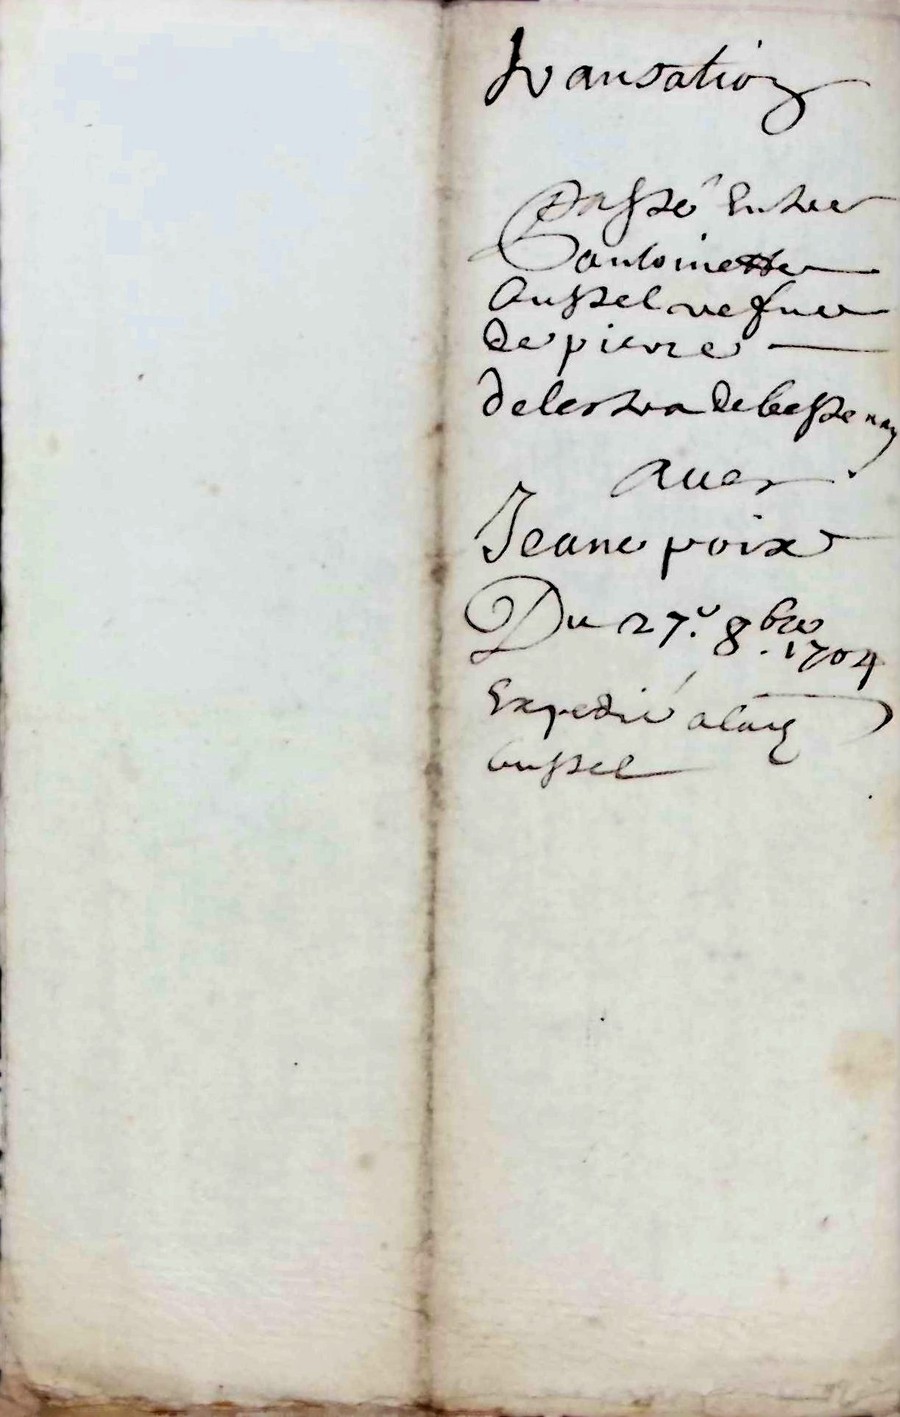 Transation
Passé Entre
antoinette
Aussel vefue
de pierre
delestra de bessenay
Auec
Jeane poix
Du 27.e 8bre 1704
Expedié alad
Aussel